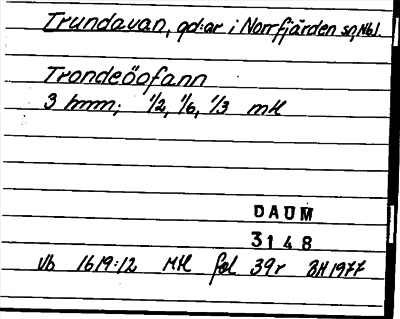 Trundavan, gd:ar i Norrfjärden sn, Nbl.
Trondeöofann
3 hmn; 1/2, 1/6, 1/3 mtl
DAUM
3148
Vb 1619:12 Mtl fol 39r BH 1977